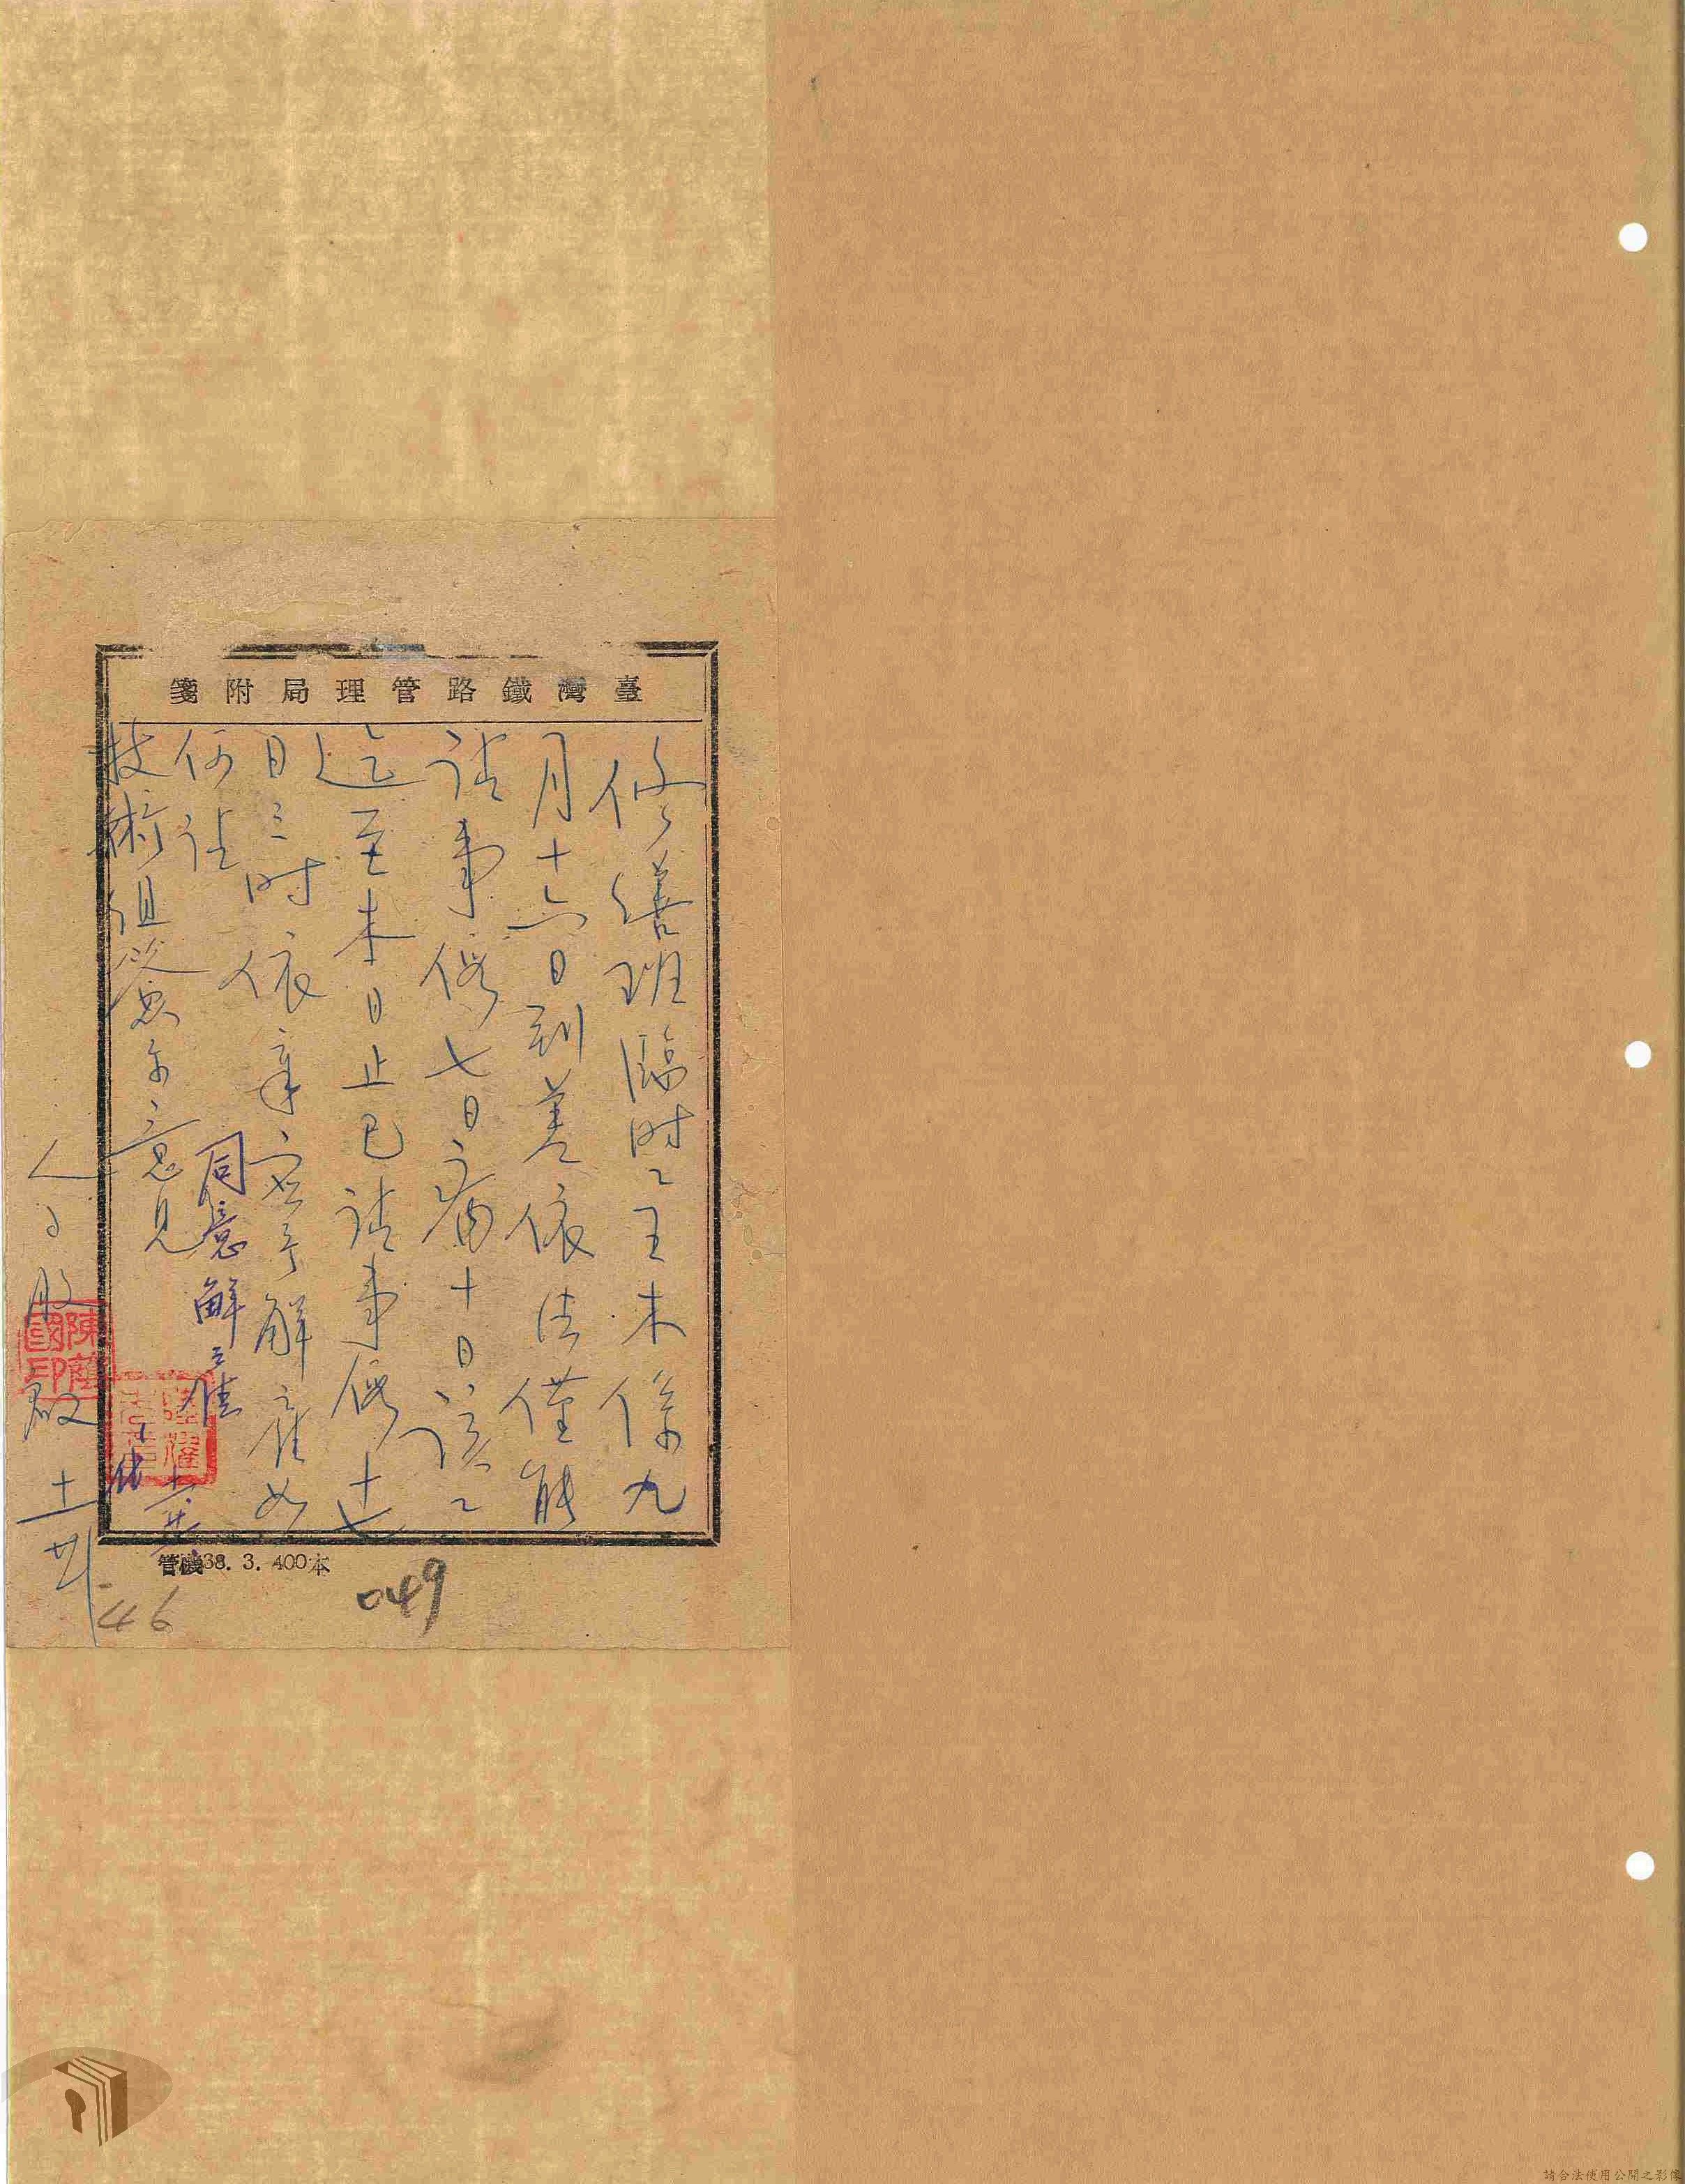 臺灣鐵路管理局附箋
修繕班臨時工王木係九
月十六日到差依法僅能
請事假七日病十日該工
迄至本日止已請事假十七
日三时依章應予解雇如
何請
技術組簽註意見
同意解雇
人事股
陳蔭國印
管機38. 3. 400本
46
049
請合法使用公開之影像